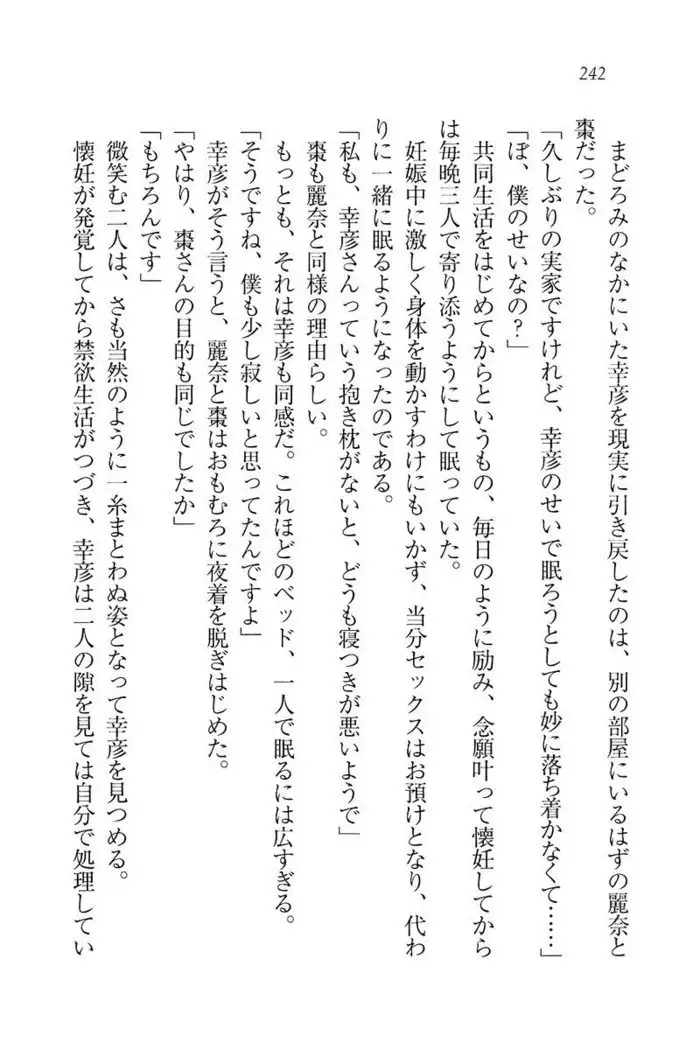 242
まどろみのなかにいた幸彦を現実に引き戻したのは、別の部屋にいるはずの麗奈と
棗だった。
「久しぶりの実家ですけれど、幸彦のせいで眠ろうとしても妙に落ち着かなくて……」
「ぼ、僕のせいなの？」
共同生活をはじめてからというもの、毎日のように励み、念願叶って懐妊してから
は毎晩三人で寄り添うようにして眠っていた。
妊娠中に激しく身体を動かすわけにもいかず、当分セックスはお預けとなり、代わ
りに一緒に眠るようになったのである。
「私も、幸彦さんっていう抱き枕がないと、どうも寝つきが悪いようで」
棗も麗奈と同様の理由らしい。
もっとも、それは幸彦も同感だ。これほどのベッド、一人で眠るには広すぎる。
「そうですね、僕も少し寂しいと思ってたんですよ」
幸彦がそう言うと、麗奈と棗はおもむろに夜着を脱ぎはじめた。
「やはり、棗さんの目的も同じでしたか」
「もちろんです」
微笑む二人は、さも当然のように一糸まとわぬ姿となって幸彦を見つめる。
懐妊が発覚してから禁欲生活がつづき、幸彦は二人の隙を見ては自分で処理してい